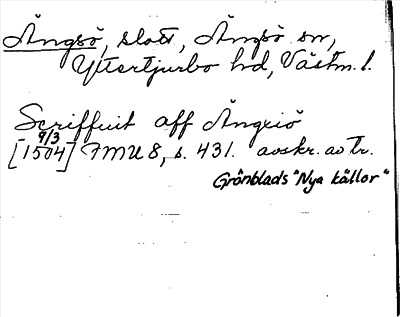 Ängsö, slott, Ängsö sn,
Yttertjurbo hd, Västm. l.
Scriffuit aff Ängxiö
9/3
[1504] FMU 8, s. 431. avskr. av tr.
Grönblads "Nya källor"